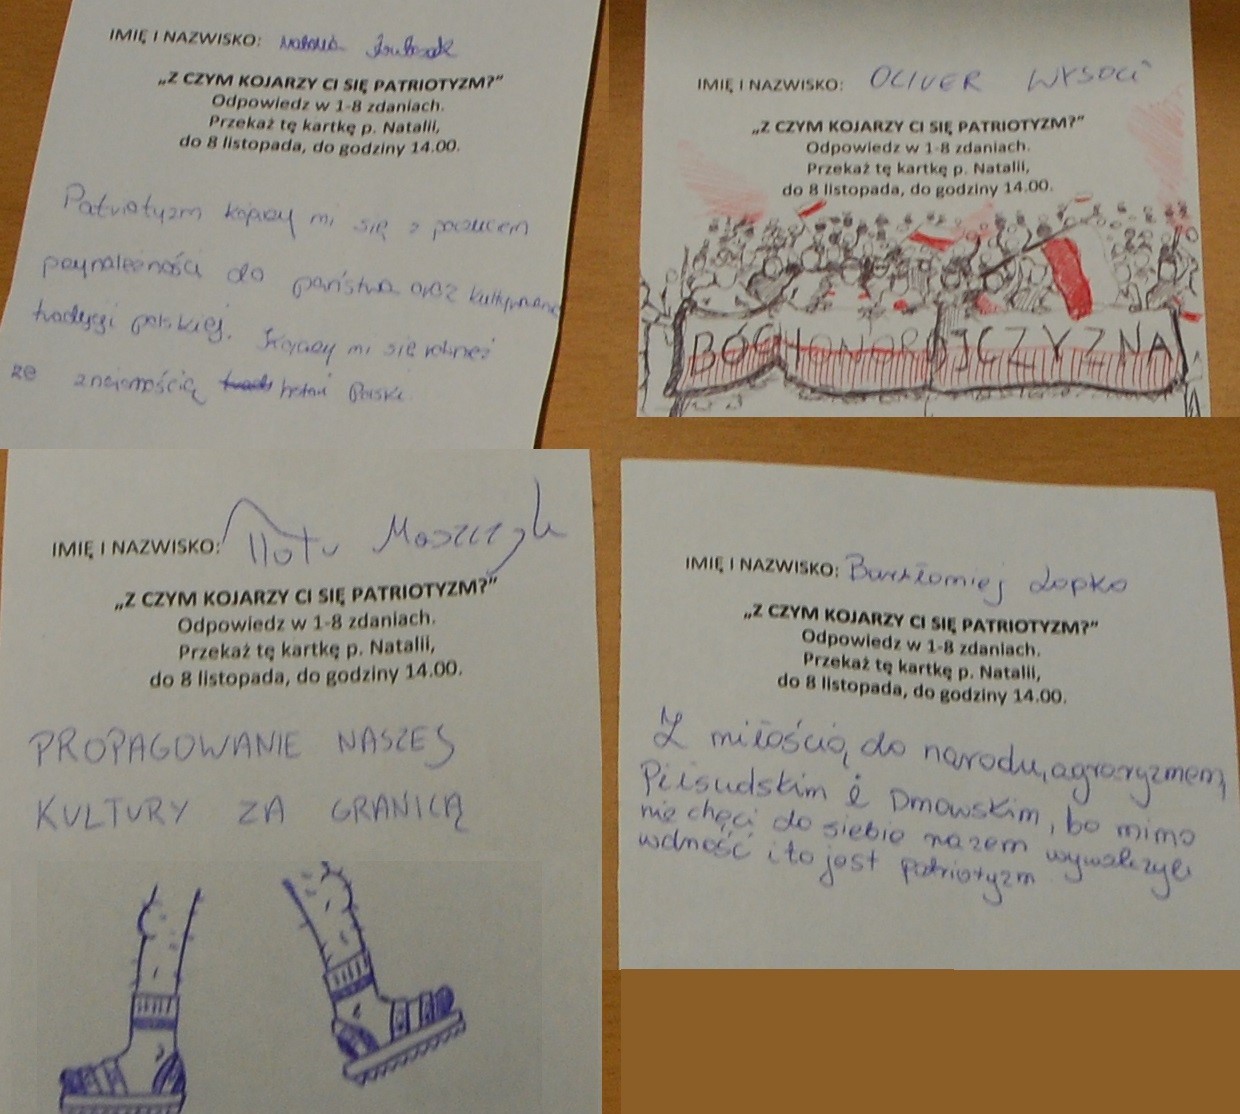 IMIĘ I NAZWISKO: Natalia
„Z CZYM KOJARZY CI SIĘ PATRIOTYZM?”
Odpowiedz w 1-8 zdaniach.
Przekaż tę kartkę p. Natalii,
do 8 listopada, do godziny 14.00.
Patriotyzm kojarzy mi się z poczuciem
przynależności do państwa oraz
tradycji polskiej. Kojarzy mi się również
ze znajomością historii Polski.
IMIĘ I NAZWISKO: OLIVER WYSOCKI
„Z CZYM KOJARZY CI SIĘ PATRIOTYZM?”
Odpowiedz w 1-8 zdaniach.
Przekaż tę kartkę p. Natalii,
do 8 listopada, do godziny 14.00.
BÓG HONOR OJCZYZNA
IMIĘ I NAZWISKO: Moszczyk
„Z CZYM KOJARZY CI SIĘ PATRIOTYZM?”
Odpowiedz w 1-8 zdaniach.
Przekaż tę kartkę p. Natalii,
do 8 listopada, do godziny 14.00.
PROPAGOWANIE NASZEJ
KULTURY ZA GRANICĄ
IMIĘ I NAZWISKO: Bartłomiej Łopko
„Z CZYM KOJARZY CI SIĘ PATRIOTYZM?”
Odpowiedz w 1-8 zdaniach.
Przekaż tę kartkę p. Natalii,
do 8 listopada, do godziny 14.00.
Z miłością do narodu, agraryzmem,
Piłsudskim i Dmowskim, bo mimo
niechęci do siebie razem wywalczyli
wolność i to jest patriotyzm